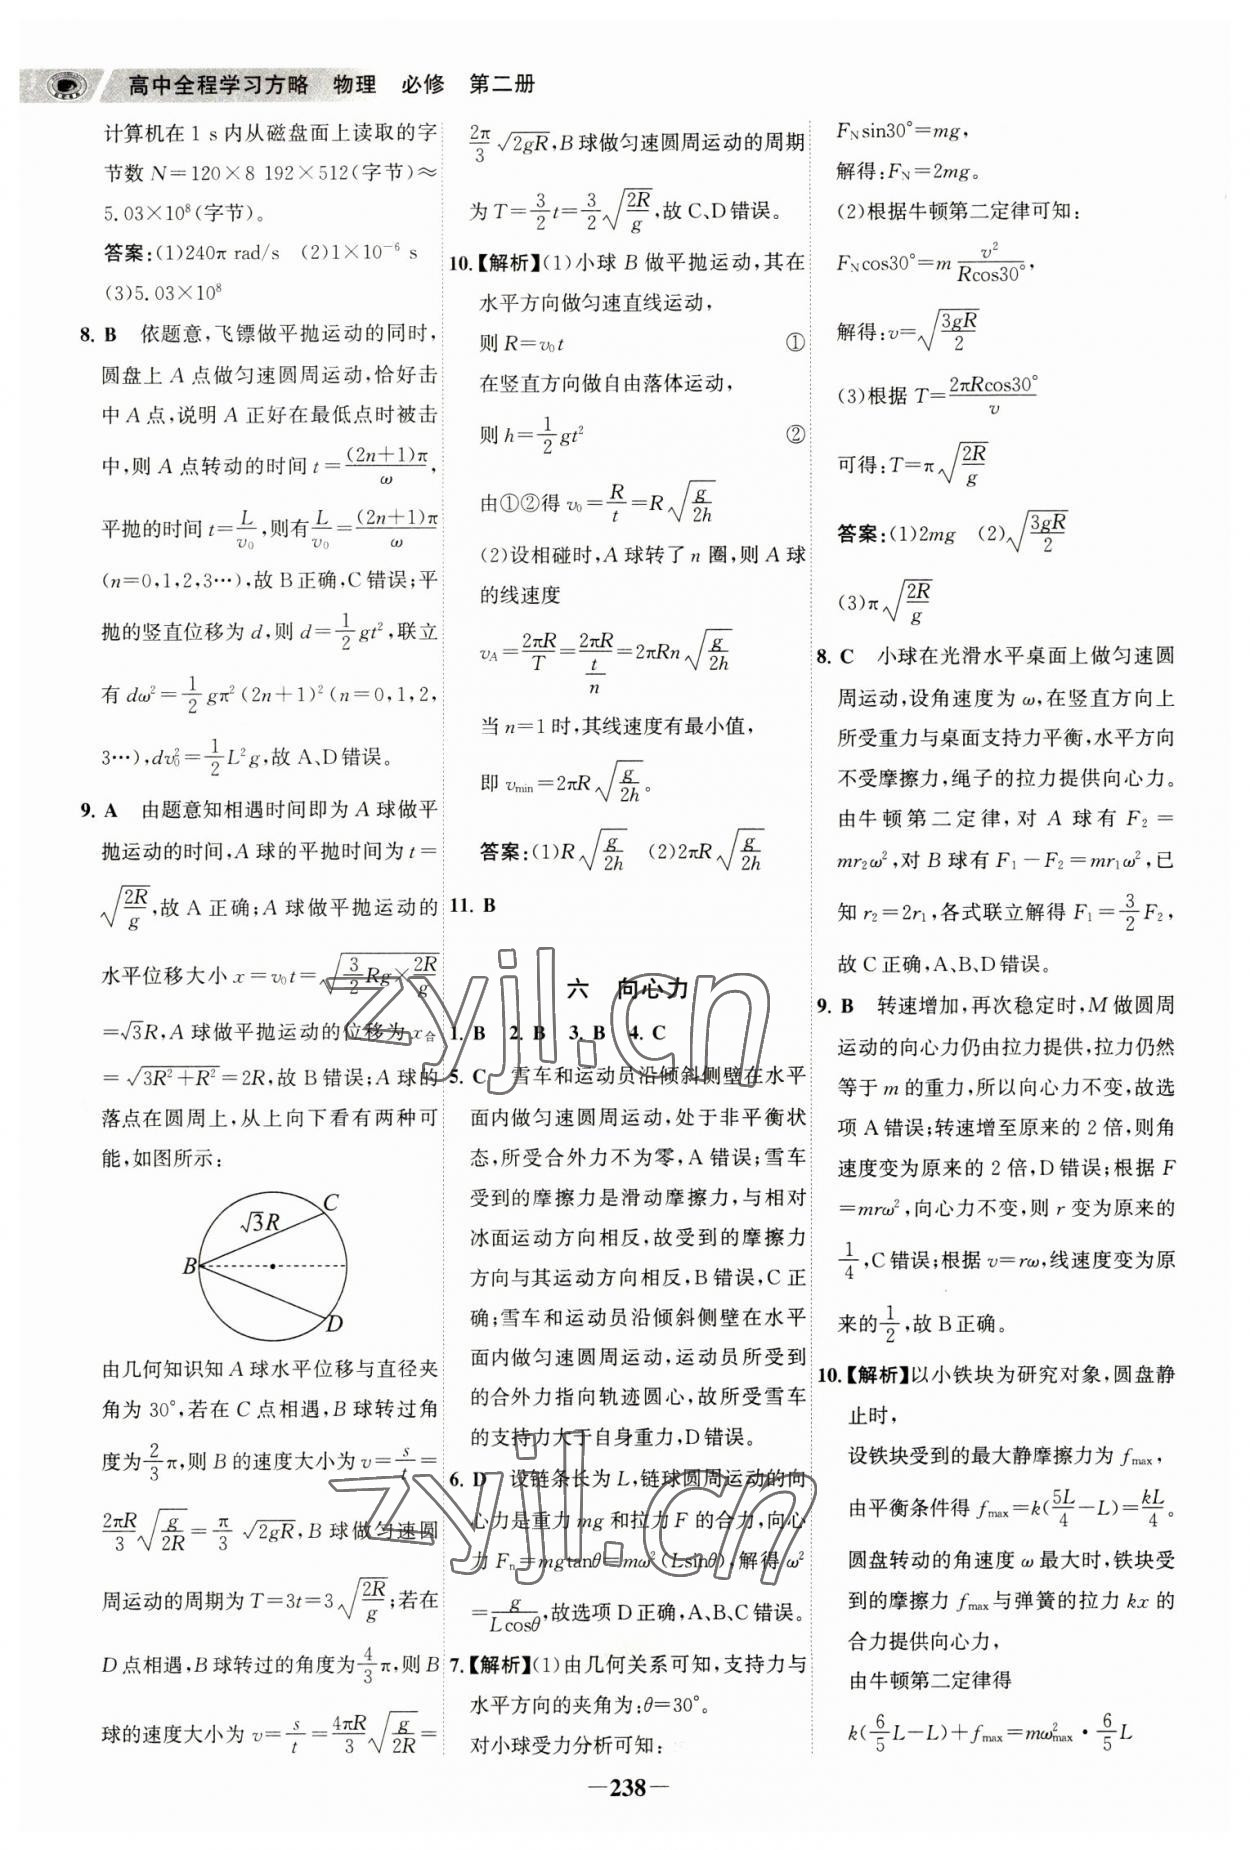 高中全程学习方略 物理 必修 第二册
计算机在 1 s 内从磁盘面上读取的字
节数 N=120×8 192×512(字节)≈
5.03×10⁸(字节)。
答案:(1)240π rad/s (2)1×10⁻⁶ s
(3)5.03×10⁸
8. B 依题意,飞镖做平抛运动的同时,
圆盘上 A 点做匀速圆周运动,恰好击
中 A 点,说明 A 正好在最低点时被击
中,则 A 点转动的时间 t=(2n+1)π/ω,
平抛的时间 t=L/v₀,则有L/v₀=(2n+1)π/ω
(n=0,1,2,3…),故 B 正确,C 错误;平
抛的竖直位移为 d,则 d=1/2 gt²,联立
有 dω²=1/2 gπ²(2n+1)²(n=0,1,2,
3…),dv₀²=1/2 L²g,故 A、D 错误。
9. A 由题意知相遇时间即为 A 球做平
抛运动的时间,A 球的平抛时间为 t=
√(2R/g),故 A 正确;A 球做平抛运动的
水平位移大小 x=v₀t=√(3/2 Rg×2R/g)
=√3R,A 球做平抛运动的位移为 x合
=√(3R²+R²)=2R,故 B 错误;A 球的
落点在圆周上,从上向下看有两种可
能,如图所示:
√3R
C
B
D
由几何知识知 A 球水平位移与直径夹
角为 30°,若在 C 点相遇,B 球转过角
度为2/3 π,则 B 的速度大小为 v=s/t=
2πR/3 √(g/2R)=π/3 √(2gR),B 球做匀速圆
周运动的周期为 T=3t=3√(2R/g);若在
D 点相遇,B 球转过的角度为4/3 π,则 B
球的速度大小为 v=s/t=4πR/3 √(g/2R)=
2π/3 √(2gR),B 球做匀速圆周运动的周期
为 T=3/2 t=3/2 √(2R/g),故 C、D 错误。
10.【解析】(1)小球 B 做平抛运动,其在
水平方向做匀速直线运动,
则 R=v₀t ①
在竖直方向做自由落体运动,
则 h=1/2 gt² ②
由①②得 v₀=R/t=R√(g/2h)
(2)设相碰时,A 球转了 n 圈,则 A 球
的线速度
v_A=2πR/T=2πR/(t/n)=2πRn√(g/2h)
当 n=1 时,其线速度有最小值,
即 v_min=2πR√(g/2h)。
答案:(1)R√(g/2h) (2)2πR√(g/2h)
11. B
六 向心力
1. B 2. B 3. B 4. C
5. C 雪车和运动员沿倾斜侧壁在水平
面内做匀速圆周运动,处于非平衡状
态,所受合外力不为零,A 错误;雪车
受到的摩擦力是滑动摩擦力,与相对
冰面运动方向相反,故受到的摩擦力
方向与其运动方向相反,B 错误,C 正
确;雪车和运动员沿倾斜侧壁在水平
面内做匀速圆周运动,运动员所受到
的合外力指向轨迹圆心,故所受雪车
的支持力大于自身重力,D 错误。
6. D 设链条长为 L,链球圆周运动的向
心力是重力 mg 和拉力 F 的合力,向心
力 Fₙ=mgtanθ=mω²(Lsinθ),解得 ω²
=g/(Lcosθ),故选项 D 正确,A、B、C 错误。
7.【解析】(1)由几何关系可知,支持力与
水平方向的夹角为:θ=30°。
对小球受力分析可知:
F_N sin30°=mg,
解得:F_N=2mg。
(2)根据牛顿第二定律可知:
F_N cos30°=m v²/(Rcos30°),
解得:v=√(3gR/2)
(3)根据 T=2πRcos30°/v
可得:T=π√(2R/g)
答案:(1)2mg (2)√(3gR/2)
(3)π√(2R/g)
8. C 小球在光滑水平桌面上做匀速圆
周运动,设角速度为 ω,在竖直方向上
所受重力与桌面支持力平衡,水平方向
不受摩擦力,绳子的拉力提供向心力。
由牛顿第二定律,对 A 球有 F₂=
mr₂ω²,对 B 球有 F₁-F₂=mr₁ω²,已
知 r₂=2r₁,各式联立解得 F₁=3/2 F₂,
故 C 正确,A、B、D 错误。
9. B 转速增加,再次稳定时,M 做圆周
运动的向心力仍由拉力提供,拉力仍然
等于 m 的重力,所以向心力不变,故选
项 A 错误;转速增至原来的 2 倍,则角
速度变为原来的 2 倍,D 错误;根据 F
=mrω²,向心力不变,则 r 变为原来的
1/4,C 错误;根据 v=rω,线速度变为原
来的1/2,故 B 正确。
10.【解析】以小铁块为研究对象,圆盘静
止时,
设铁块受到的最大静摩擦力为 f_max,
由平衡条件得 f_max=k(5L/4-L)=kL/4。
圆盘转动的角速度 ω 最大时,铁块受
到的摩擦力 f_max 与弹簧的拉力 kx 的
合力提供向心力,
由牛顿第二定律得
k(6/5 L-L)+f_max=mω²_max·6/5 L
—238—
zyjl.cn
zyjl.cn